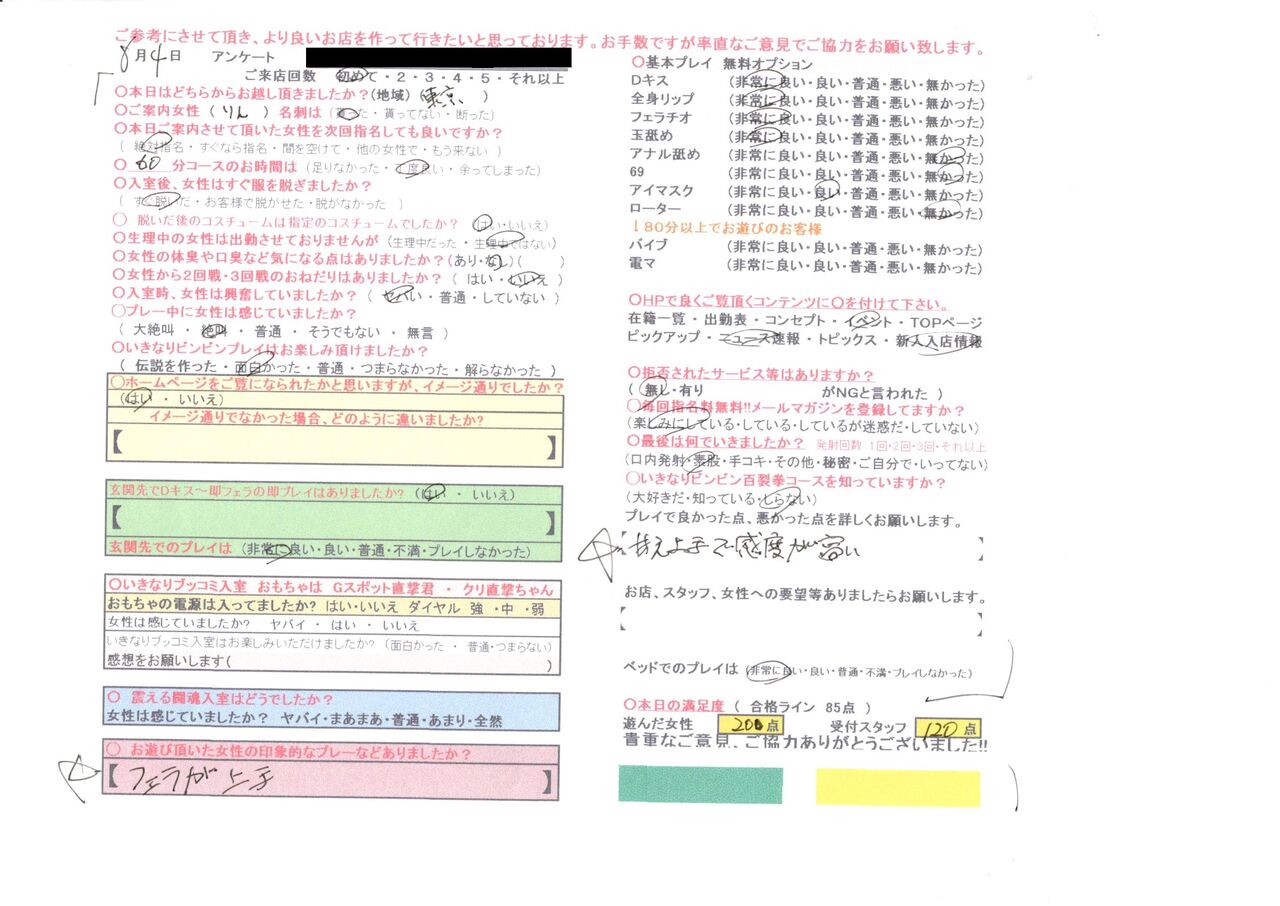 ご参考にさせて頂き、より良いお店を作って行きたいと思っております。お手数ですが率直なご意見でご協力をお願い致します。
8月4日 アンケート
ご来店回数 初めて・2・3・4・5・それ以上
〇本日はどちらからお越し頂きましたか?(地域)(東京)
〇ご案内女性(りん)名刺は(貰った・貰ってない・断った)
〇本日ご案内させて頂いた女性を次回指名しても良いですか?
(絶対指名・すぐなら指名・間を空けて・他の女性で・もう来ない)
〇 60 分コースのお時間は(足りなかった・丁度良い・余ってしまった)
〇入室後、女性はすぐ服を脱ぎましたか?
(すぐ脱いだ・お客様で脱がせた・脱がなかった)
〇 脱いだ後のコスチュームは指定のコスチュームでしたか? (はい・いいえ)
〇生理中の女性は出勤させておりませんが(生理中だった・生理中ではない)
〇女性の体臭や口臭など気になる点はありましたか?(あり・なし)( )
〇女性から2回戦・3回戦のおねだりはありましたか?(はい・いいえ)
〇入室時、女性は興奮していましたか?(ヤバい・普通・していない)
〇プレー中に女性は感じていましたか?
(大絶叫・絶叫・普通・そうでもない・無言)
〇いきなりビンビンプレイはお楽しみ頂けましたか?
(伝説を作った・面白かった・普通・つまらなかった・解らなかった)
〇ホームページをご覧になられたかと思いますが、イメージ通りでしたか?
(はい・いいえ)
イメージ通りでなかった場合、どのように違いましたか?
【 】
玄関先でDキス～即フェラの即プレイはありましたか?(はい・いいえ)
【 】
玄関先でのプレイは(非常に良い・良い・普通・不満・プレイしなかった)
〇いきなりブッコミ入室 おもちゃは Gスポット直撃君 ・ クリ直撃ちゃん
おもちゃの電源は入ってましたか? はい・いいえ ダイヤル 強・中・弱
女性は感じていましたか? ヤバイ・はい・いいえ
いきなりブッコミ入室はお楽しみいただけましたか?(面白かった・普通・つまらない)
感想をお願いします( )
〇 震える闘魂入室はどうでしたか?
女性は感じていましたか? ヤバイ・まあまあ・普通・あまり・全然
〇 お遊び頂いた女性の印象的なプレーなどありましたか?
【フェラが上手】
〇基本プレイ 無料オプション
Dキス (非常に良い・良い・普通・悪い・無かった)
全身リップ (非常に良い・良い・普通・悪い・無かった)
フェラチオ (非常に良い・良い・普通・悪い・無かった)
玉舐め (非常に良い・良い・普通・悪い・無かった)
アナル舐め (非常に良い・良い・普通・悪い・無かった)
69 (非常に良い・良い・普通・悪い・無かった)
アイマスク (非常に良い・良い・普通・悪い・無かった)
ローター (非常に良い・良い・普通・悪い・無かった)
↓80分以上でお遊びのお客様
バイブ (非常に良い・良い・普通・悪い・無かった)
電マ (非常に良い・良い・普通・悪い・無かった)
〇HPで良くご覧頂くコンテンツに〇を付けて下さい。
在籍一覧・出勤表・コンセプト・イベント・TOPページ
ピックアップ・ニュース速報・トピックス・新人入店情報
〇拒否されたサービス等はありますか?
(無し・有り がNGと言われた)
〇毎回指名料無料!!メールマガジンを登録してますか?
(楽しみにしている・している・しているが迷惑だ・していない)
〇最後は何でいきましたか? 発射回数 1回・2回・3回・それ以上
(口内発射・素股・手コキ・その他・秘密・ご自分で・いってない)
〇いきなりビンビン百裂拳コースを知っていますか?
(大好きだ・知っている・しらない)
プレイで良かった点、悪かった点を詳しくお願いします。
甘え上手で感度が高い
お店、スタッフ、女性への要望等ありましたらお願いします。
ベッドでのプレイは(非常に良い・良い・普通・不満・プレイしなかった)
〇本日の満足度(合格ライン 85点)
遊んだ女性 200点 受付スタッフ 120点
貴重なご意見、ご協力ありがとうございました!!